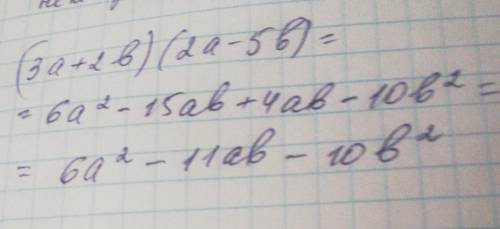 (3a+2b)(2a-5b)=
=6a²-15ab+4ab-10b²=
=6a²-11ab-10b²